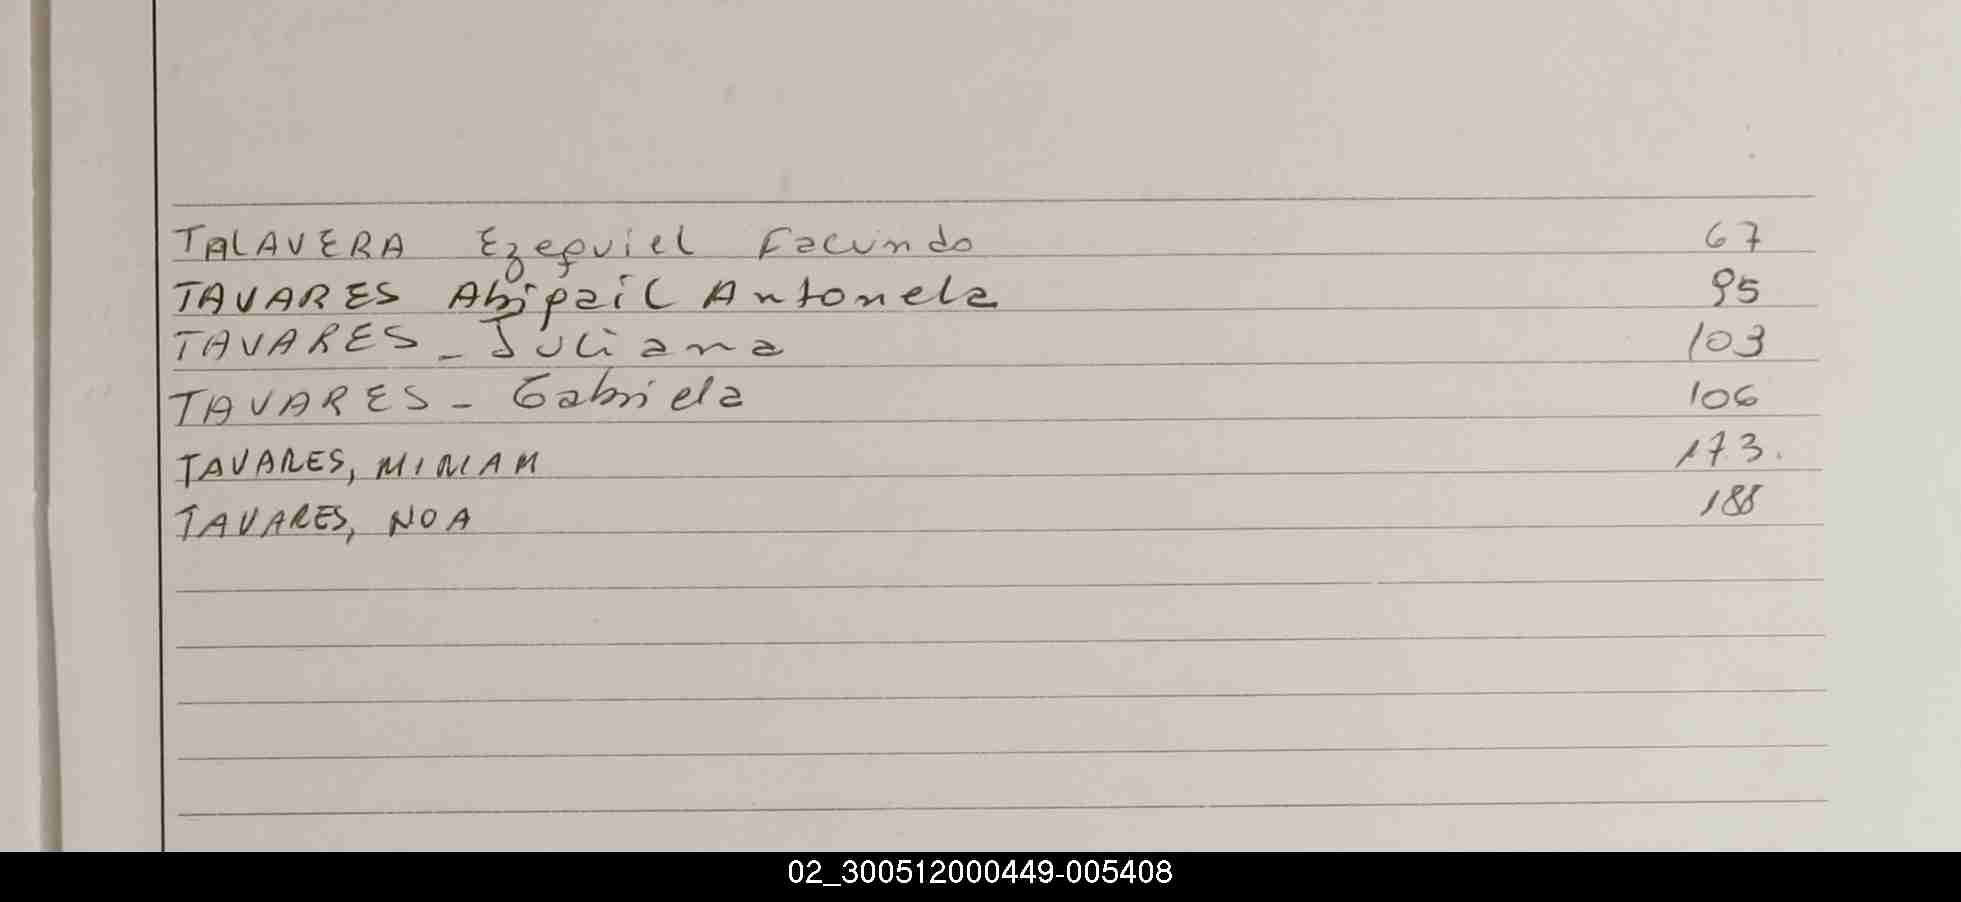 TALAVERA Ezequiel Facundo 67
TAVARES Abigail Antonela 95
TAVARES - Juliana 103
TAVARES - Gabriela 106
TAVARES, MIRIAM 173.
TAVARES, NOA 188
02_300512000449-005408